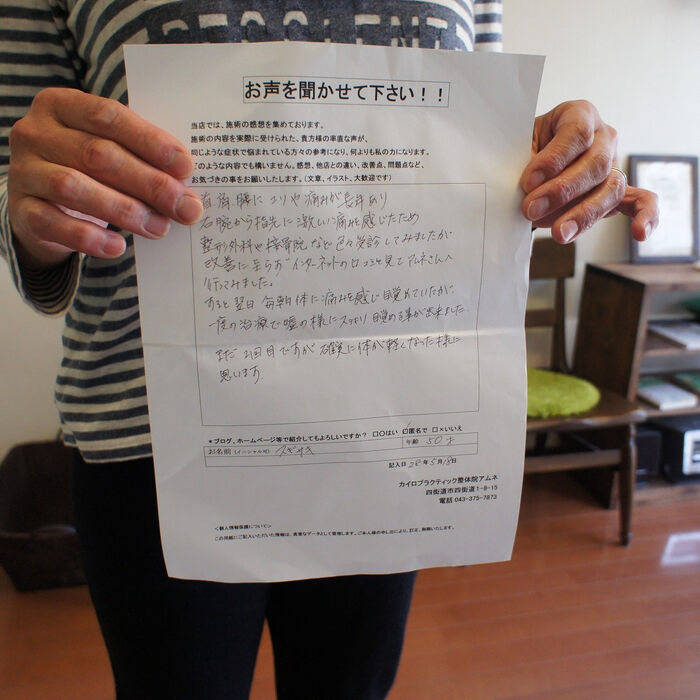 お声を聞かせて下さい！！
当店では、施術の感想を集めております。
施術の内容を実際に受けられた、貴方様の率直な声が、
同じような症状で悩まされている方々の参考になり、何よりも私の力になります。
どのような内容でも構いません。感想、他店との違い、改善点、問題点など、
お気づきの事をお願いしたします。（文章、イラスト、大歓迎です）
首 肩 腰に コリや痛みが長年あり
右腕から指先に激しい痛みを感じたため
整形外科や接骨院など色々受診してみましたが
改善に至らず インターネットの口コミを見てアムネさんへ
行ってみました。
すると翌日 毎朝体に痛みを感じ目覚めていたが
一度の治療で嘘の様にスッキリ目覚める事が出来ました。
まだ2回目ですが 確実に体が軽くなった様に
思います。
＊ブログ、ホームページ等で紹介してもよろしいですか？ □○はい ☑匿名で □×いいえ
お名前（イニシャル可） 年齢 50才
記入日 26年5月13日
カイロプラクティック整体院アムネ
四街道市四街道1-8-15
電話 043-375-7873
＜個人情報保護について＞
この用紙にご記入いただいた情報は、貴重なデータとして管理します。ご本人様の申し出により、訂正、削除いたします。